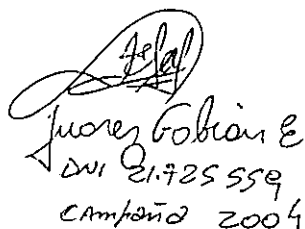 Juarez Fabián E
DNI 21.725.559
CAMPAÑA 2004